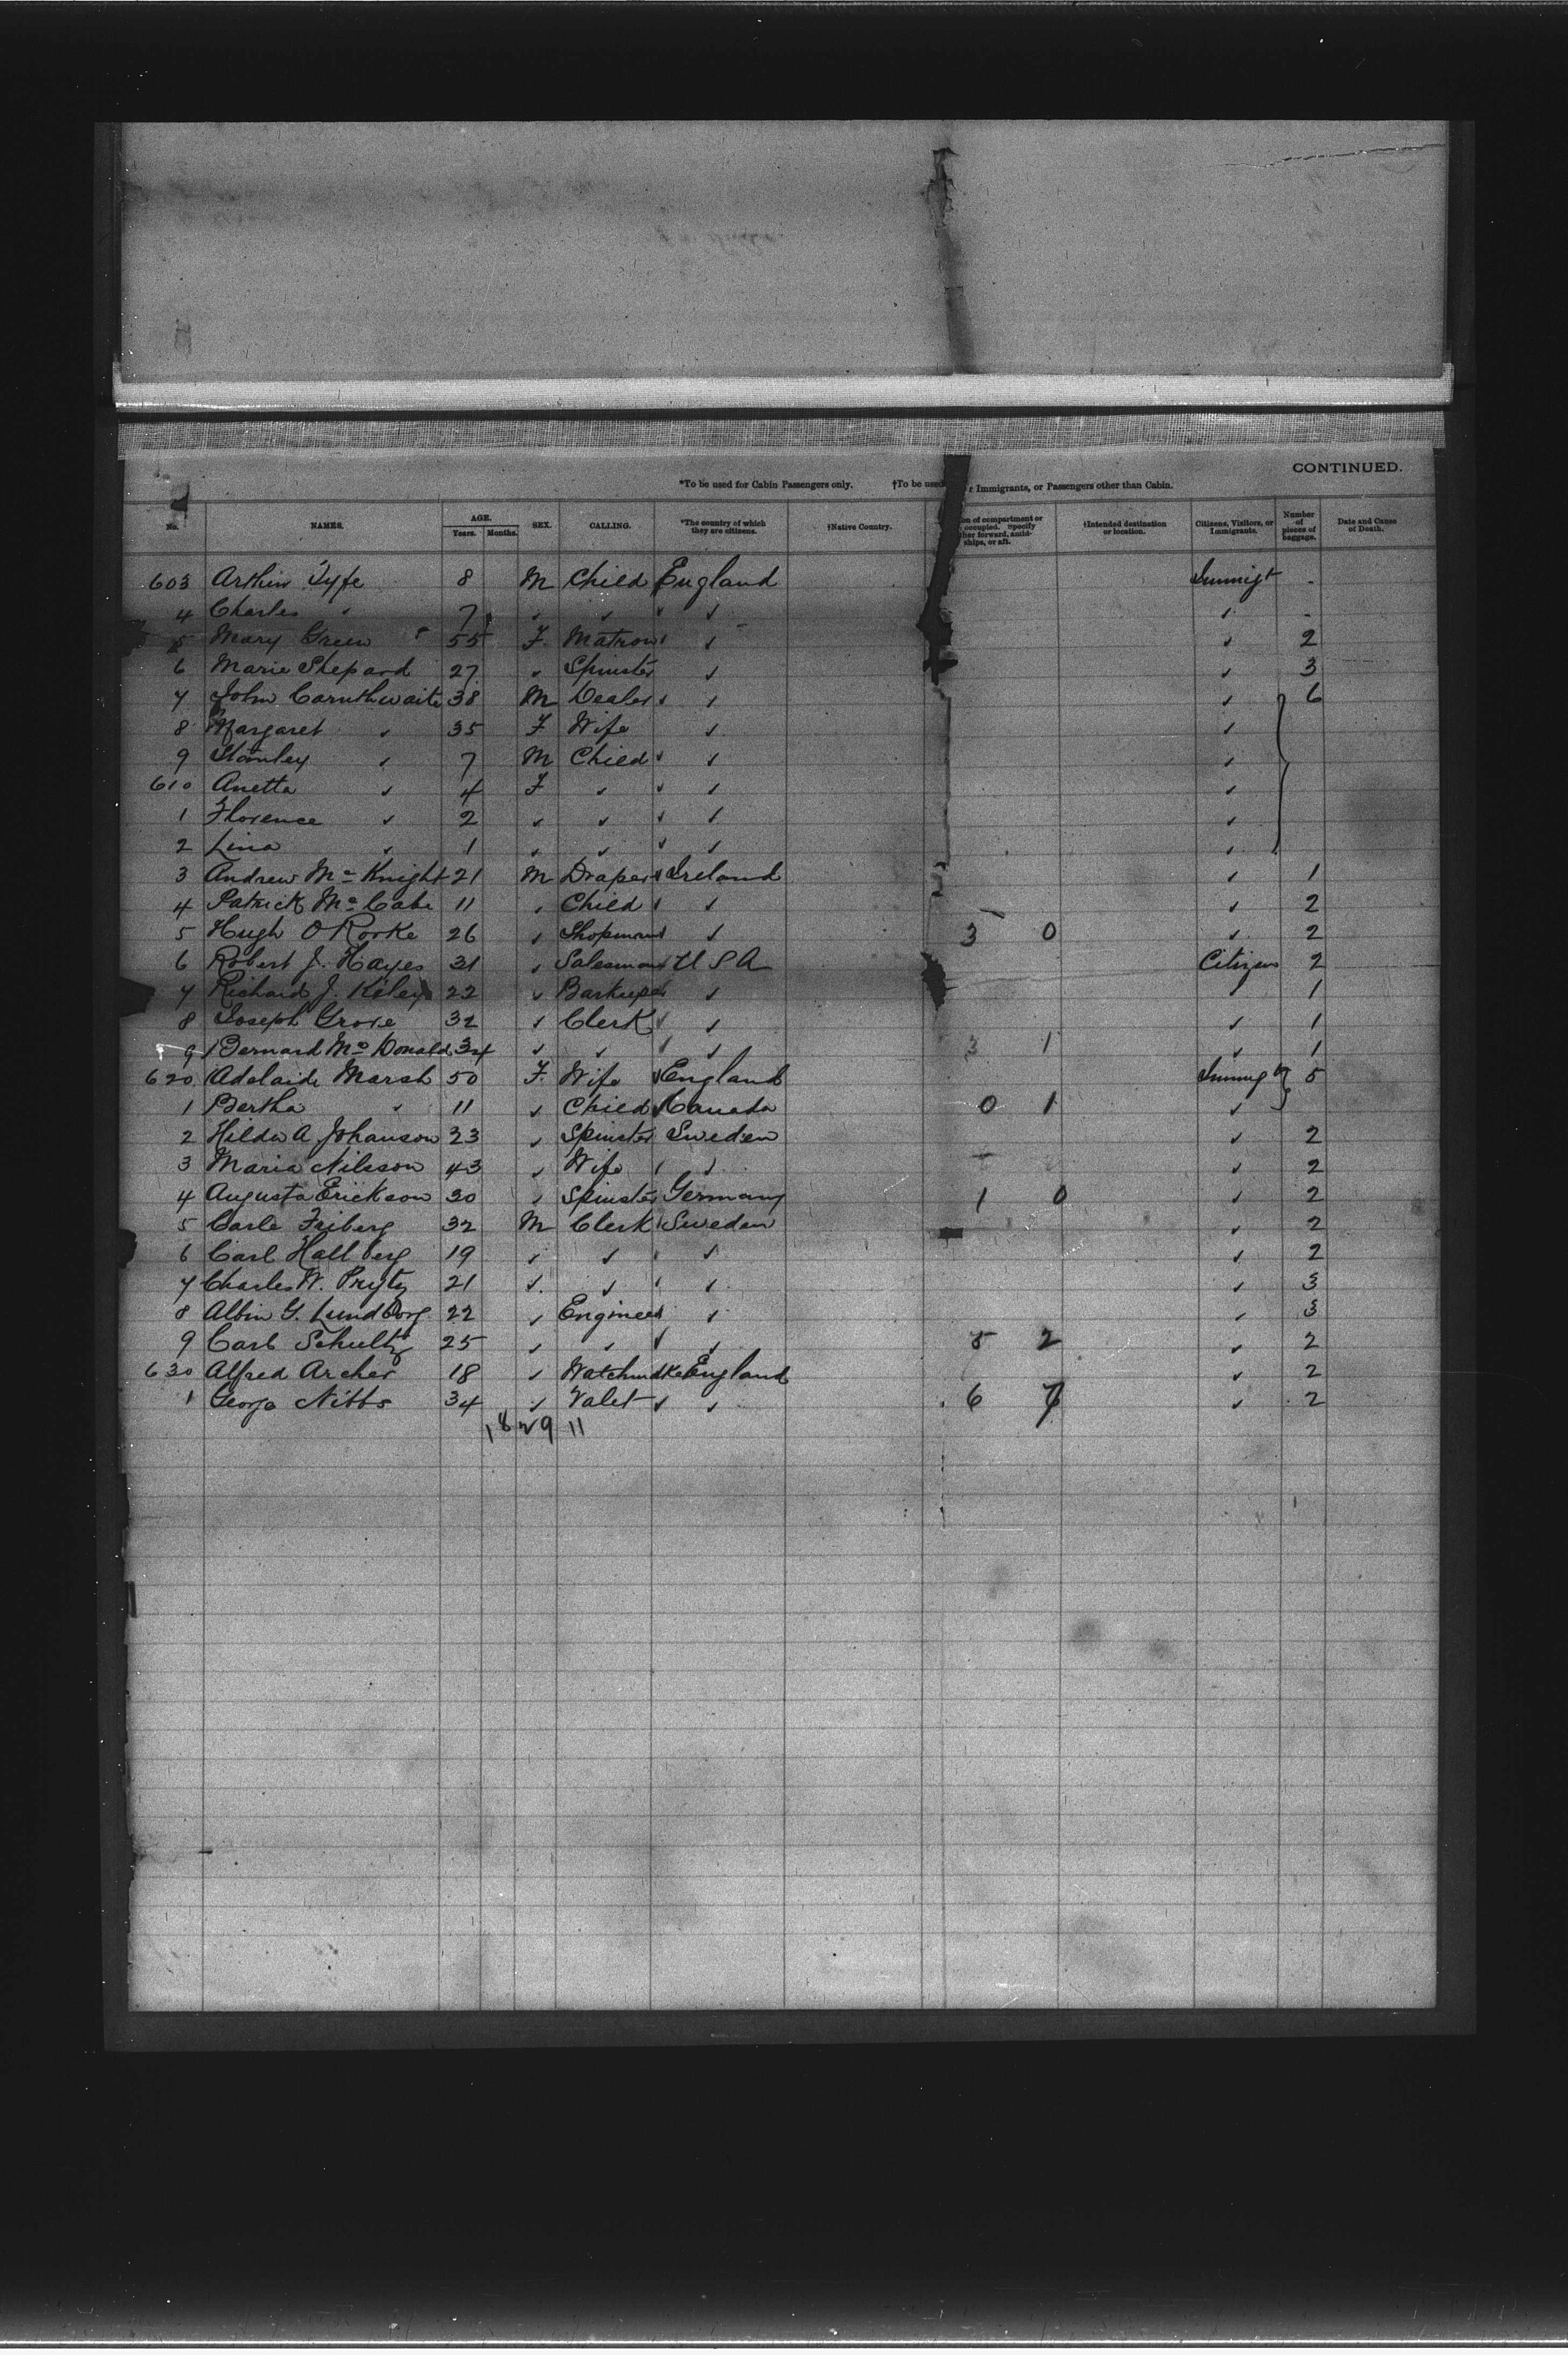 CONTINUED.
*To be used for Cabin Passengers only. †To be used r Immigrants, or Passengers other than Cabin.
No. NAMES. AGE. Years. Months. SEX. CALLING. *The country of which they are citizens. †Native Country. on of compartment or occupied. Specify her forward, amid-ships, or aft. †Intended destination or location. Citizens, Visitors, or Immigrants. Number of pieces of baggage. Date and Cause of Death.
603 Arthur Fyfe 8 M Child England Immigt -
4 Charles " 7 ✓ ✓ ✓ ✓ ✓ -
5 Mary Green 55 F. Matron ✓ ✓ 2
6 Marie Shepard 27 ✓ Spinster ✓ ✓ 3
7 John Carnthwaite 38 M Dealer ✓ ✓ ✓ 6
8 Margaret ✓ 35 F Wife ✓ ✓
9 Stanley ✓ 7 M Child ✓ ✓ ✓
610 Anetta ✓ 4 F ✓ ✓ ✓ ✓
1 Florence ✓ 2 ✓ ✓ ✓ ✓ ✓
2 Lina ✓ 1 ✓ ✓ ✓ ✓ ✓
3 Andrew Mc Knight 21 M Draper Ireland ✓ 1
4 Patrick Mc Cabe 11 ✓ Child ✓ ✓ ✓ 2
5 Hugh O Rorke 26 ✓ Shopman ✓ 3 0 ✓ 2
6 Robert J. Hayes 31 ✓ Salesman U S A Citizen 2
7 Richard J. Kiley 22 ✓ Barkeeper ✓ ✓ 1
8 Joseph Grove 32 ✓ Clerk ✓ ✓ ✓ 1
9 Bernard Mc Donald 34 ✓ ✓ ✓ ✓ 3 1 ✓ 1
620 Adelaide Marsh 50 F. Wife England Immigt 5
1 Bertha ✓ 11 ✓ Child Canada 0 1 ✓
2 Hilda A. Johanson 23 ✓ Spinster Sweden ✓ 2
3 Maria Nilsson 43 ✓ Wife ✓ ✓ ✓ 2
4 Augusta Erickson 30 ✓ Spinster Germany 1 0 ✓ 2
5 Carle Friberg 32 M Clerk Sweden ✓ 2
6 Carl Hallberg 19 ✓ ✓ ✓ ✓ ✓ 2
7 Charles W. Prytz 21 ✓ ✓ ✓ ✓ ✓ 3
8 Albin G. Lundborg 22 ✓ Engineer ✓ ✓ 3
9 Carl Schultz 25 ✓ ✓ ✓ ✓ 5 2 ✓ 2
630 Alfred Archer 18 ✓ Watchmake England ✓ 2
1 George Nibbs 34 ✓ Valet ✓ ✓ 6 7 ✓ 2
11